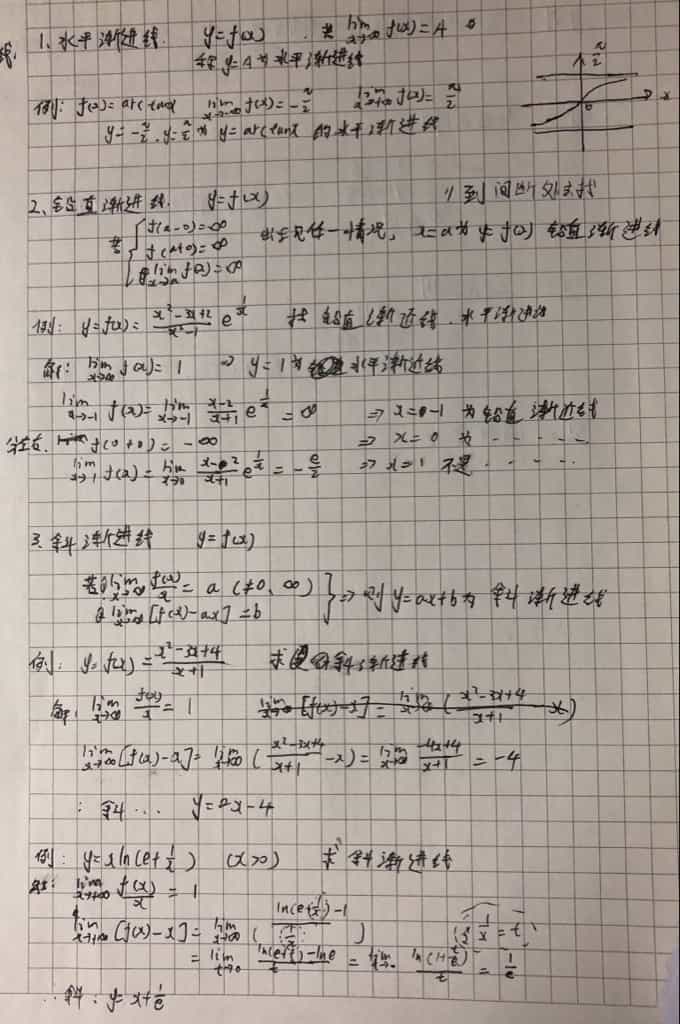 线.
1、水平渐进线. y=f(x) . 若 lim x→∞ f(x)=A
称 y=A 为水平渐进线
例: f(x)=arctanx lim x→-∞ f(x)=-π/2 lim x→+∞ f(x)=π/2
y=-π/2, y=π/2 为 y=arctanx 的水平渐进线
π/2
0 x
2、铅直渐进线. y=f(x) 1) 到间断处去找
若 { f(a-0)=∞
f(a+0)=∞ 出现任一情况, x=a 为 y=f(x) 铅直渐进线
lim x→a f(x)=∞
例: y=f(x)= (x²-3x+2)/(x²-1) e^(1/x) 求铅直渐近线. 水平渐进线
解: lim x→∞ f(x)=1 ⇒ y=1为水平渐近线
lim x→-1 f(x)= lim x→-1 (x-2)/(x+1) e^(1/x) = ∞ ⇒ x=-1 为铅直渐近线
f(0+0)=-∞ ⇒ x=0 为 - - - - - -
lim x→1 f(x)= lim x→0 (x-2)/(x+1) e^(1/x) = -e/2 ⇒ x=1 不是 - - - - .
3、斜渐进线 y=f(x)
若① lim x→∞ f(x)/x = a (≠0、∞)
② lim x→∞ [f(x)-ax]=b } ⇒ 则 y=ax+b 为 斜渐进线
例: y=f(x)= (x²-3x+4)/(x+1) 求斜渐进线
解: lim x→∞ f(x)/x = 1 lim x→∞ [f(x)-x]= lim x→∞ ( (x²-3x+4)/(x+1) - x)
lim x→∞ [f(x)-x]= lim x→∞ ( (x²-3x+4)/(x+1) -x)= lim x→∞ (-4x+4)/(x+1) = -4
: 斜 ... y=x-4
例: y=xln(e+1/x) (x>0) 求 斜渐进线
解: lim x→+∞ f(x)/x = 1
lim x→+∞ [f(x)-x]= lim x→∞ ( (ln(e+1/x)-1)/(1/x) ) (令 1/x=t)
= lim t→0 (ln(e+t)-lne)/t = lim ln(1+t/e)/t = 1/e
∴ 斜: y=x+1/e